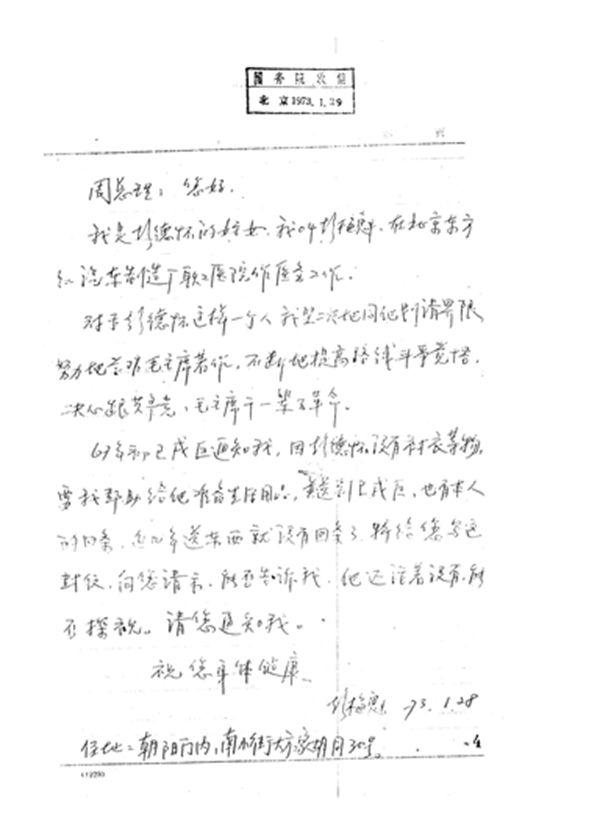 国务院收信
北京1973.1.29
周总理：您好。
我是彭德怀的侄女，我叫彭梅魁，在北京东方
红汽车制造厂职工医院作医务工作。
对于彭德怀这样一个人我坚决地同他划清界限
努力地学习毛主席著作，不断地提高路线斗争觉悟，
决心跟共产党、毛主席干一辈子革命。
67年初卫戍区通知我，因彭德怀没有衬衣等物
要我帮助给他准备生活用品，送到卫戍区，也有本人
的回条，这几年送东西就没有回条了，特给您写这
封信，向您请示，能否告诉我，他还活着没有，能
否探视。请您通知我。
祝您身体健康
彭梅魁 73.1.28
住地：朝阳门内，南小街大方家胡同30号。